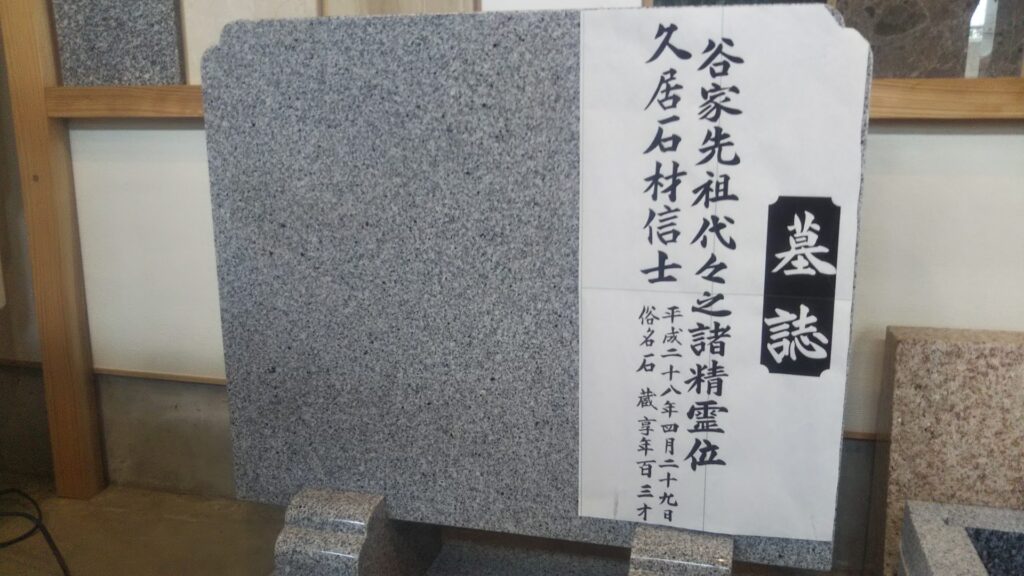 墓誌
谷家先祖代々之諸精霊位
久居石材信士
平成二十八年四月二十九日
俗名石蔵享年百三才